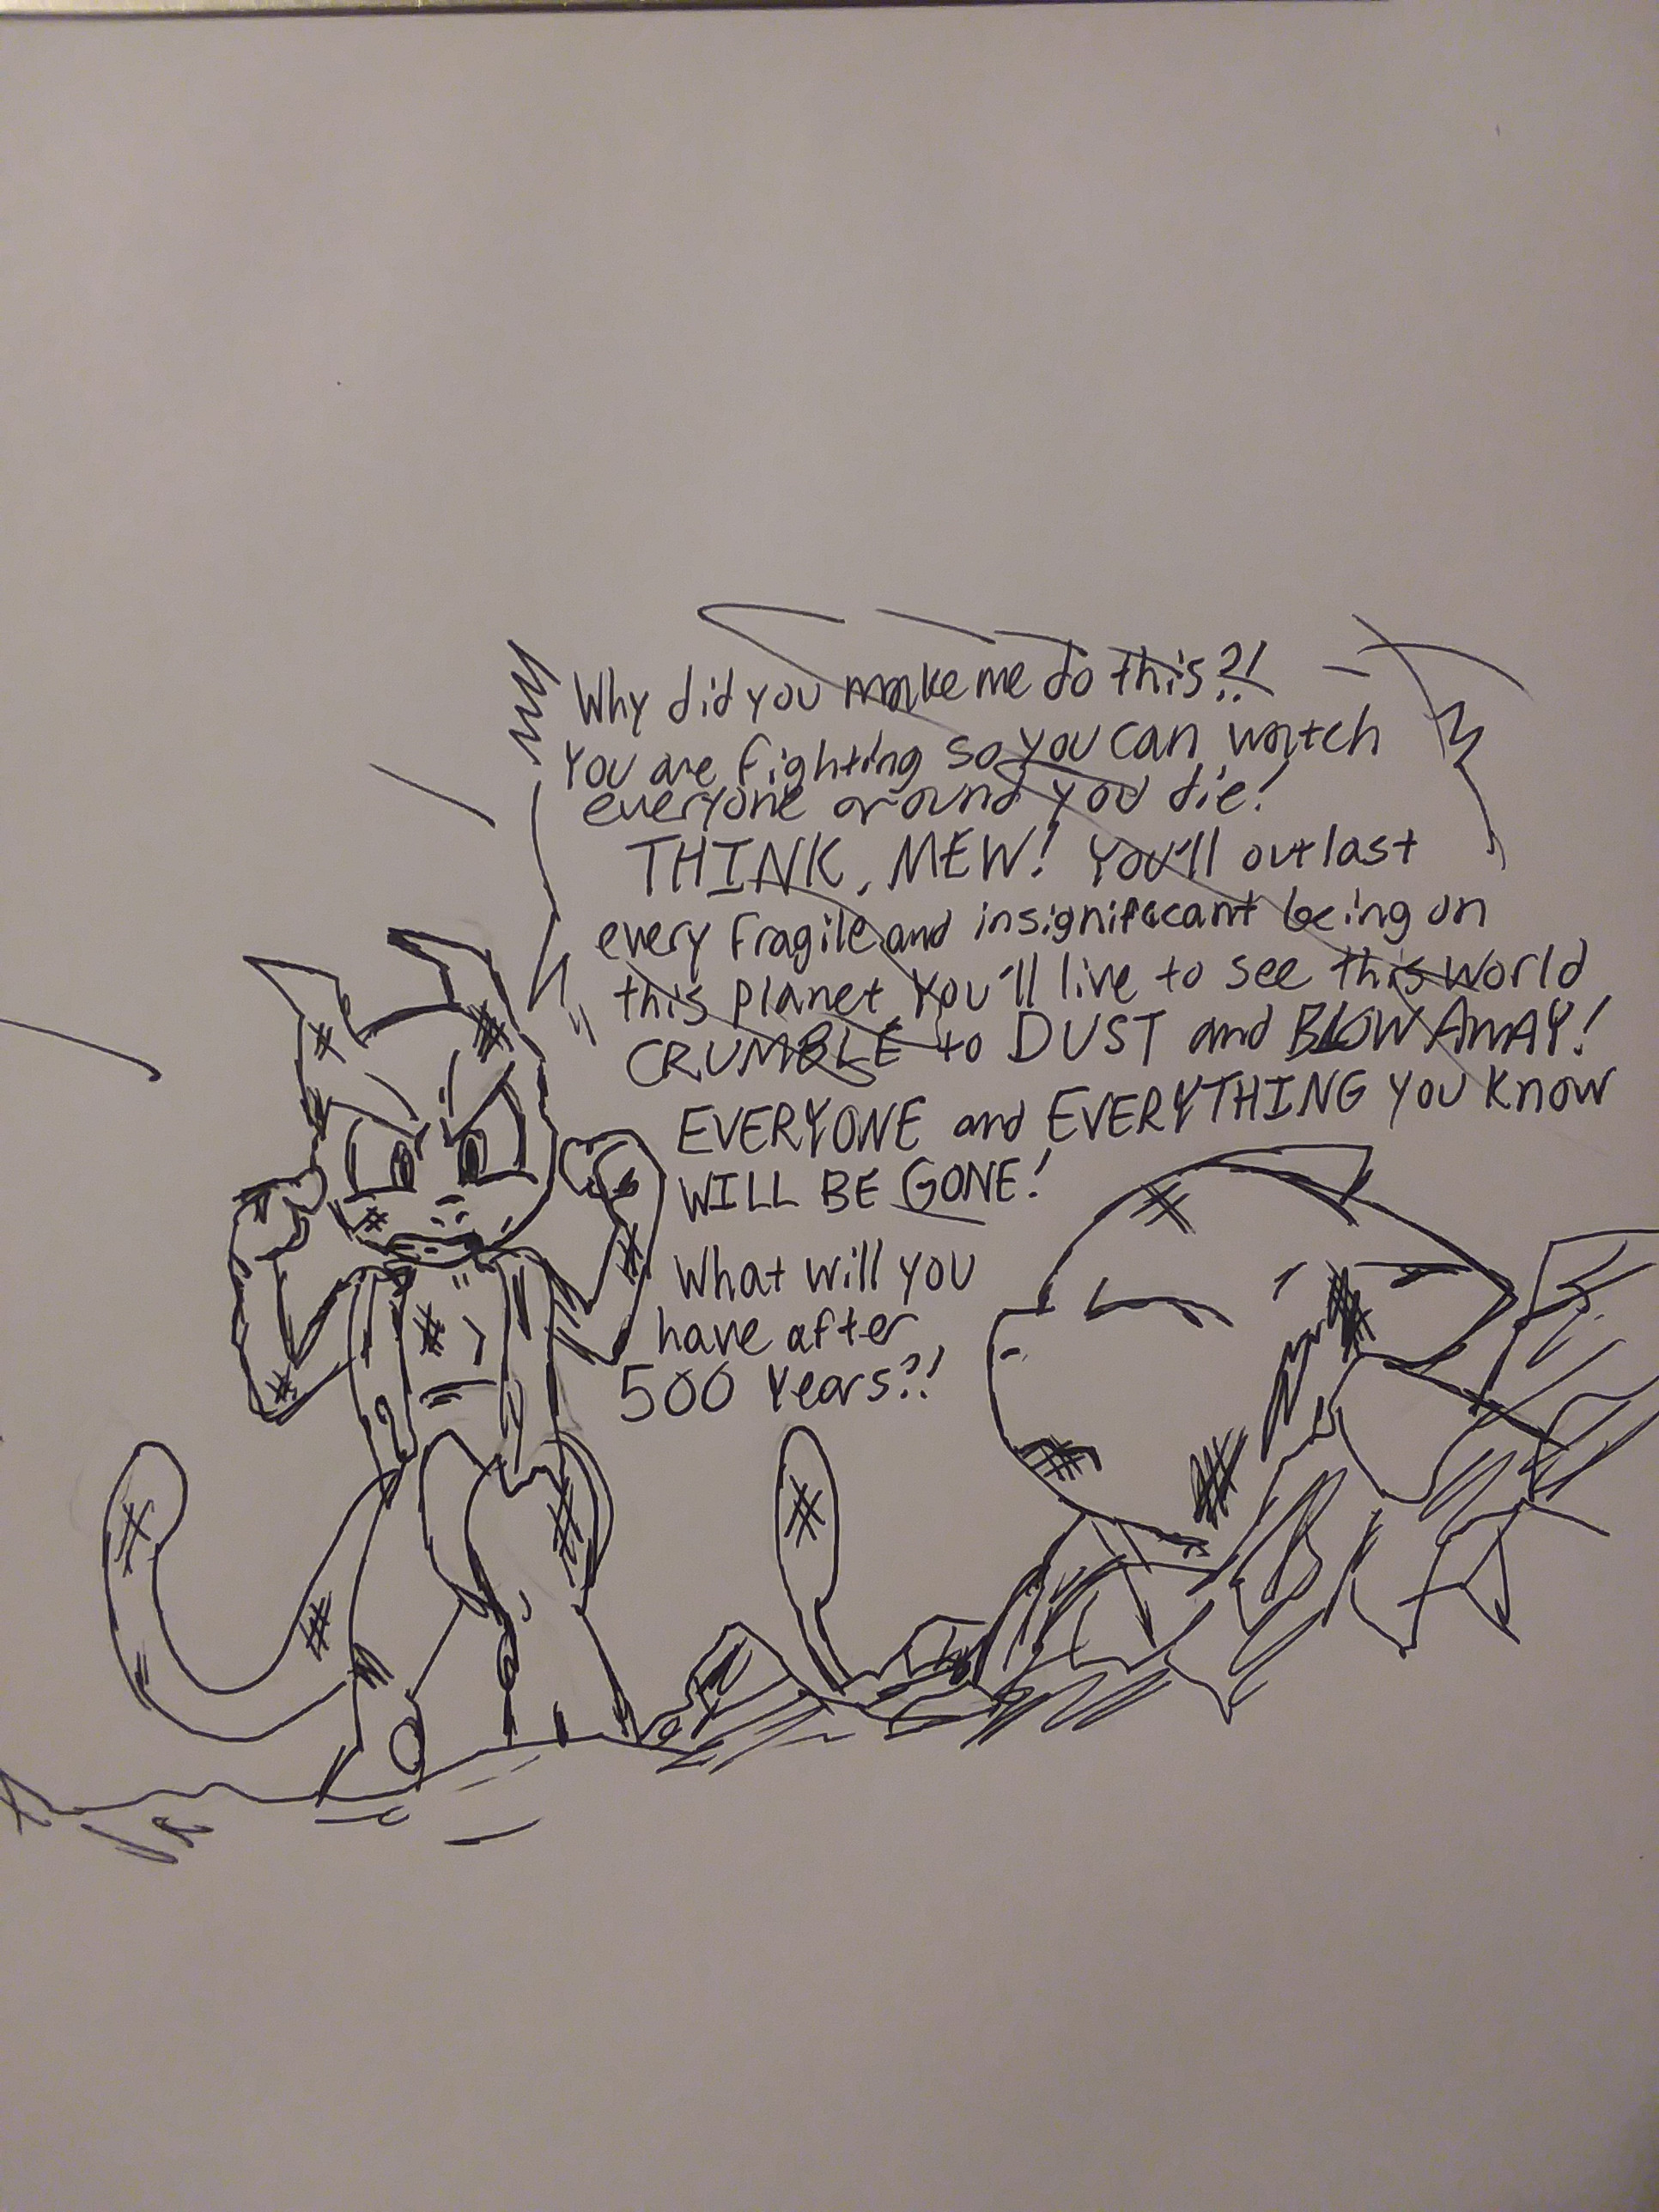 Why did you make me do this?!
You are fighting so you can watch
everyone around you die!
THINK, MEW! You'll outlast
every fragile and insignificant being on
this planet. You'll live to see this world
CRUMBLE to DUST and BLOW AWAY!
EVERYONE and EVERYTHING YOU Know
WILL BE GONE!
What will you
have after
500 Years?!